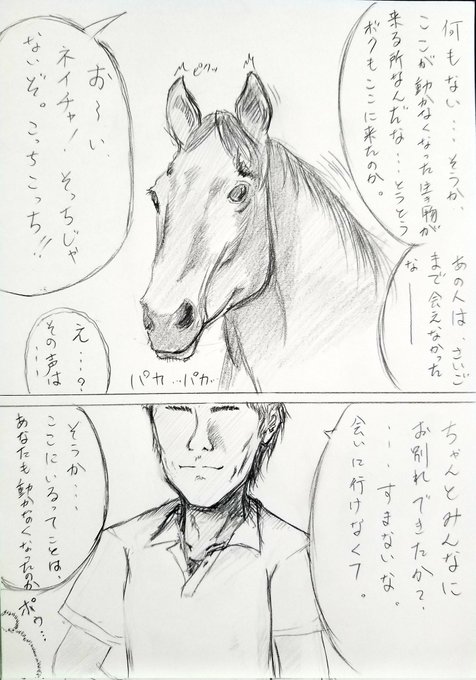 何もない…そうか、
ここが動かなくなった生き物が
来る所なんだな…とうとう
ボクもここに来たのか。
あの人、さいご
まで会えなかった
なーー
ピクッ
お〜い、
ネイチャ！そっちじゃ
ないぞ。こっちこっち!!
え…？
その声は
…
パカ…パカ
ちゃんとみんなに
お別れできたか？
…すまないな。
会いに行けなくて。
そうか…
ここにいるってことは、
あなたも動かなくなったのか
ポゥ…